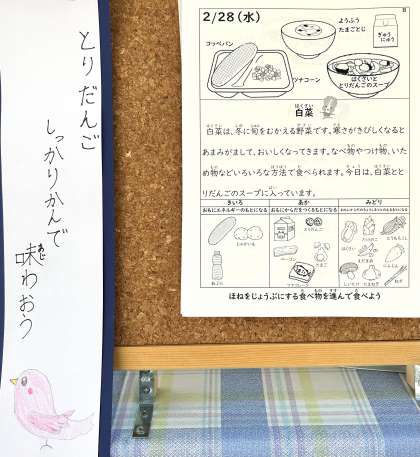 とりだんご
しっかりかんで
味わおう
あじ
2/28(水)
コッペパン
ようふう
たまごとじ
ぎゅう
にゅう
ツナコーン
はくさいと
とりだんごのスープ
はくさい
白菜
白菜は、冬に旬をむかえる野菜です。寒さがきびしくなると
あまみがまして、おいしくなってきます。なべ物やつけ物、いた
め物などいろいろな方法で食べられます。今日は、白菜とと
りだんごのスープに入っています。
きいろ
あか
みどり
おもにエネルギーのもとになる
おもにからだをつくるもとになる
じゃがいも
とりだんご
ベーコン
たまご
しいたけ
たまねぎ
ねぎ
ほねをじょうぶにする食べ物を進んで食べよう